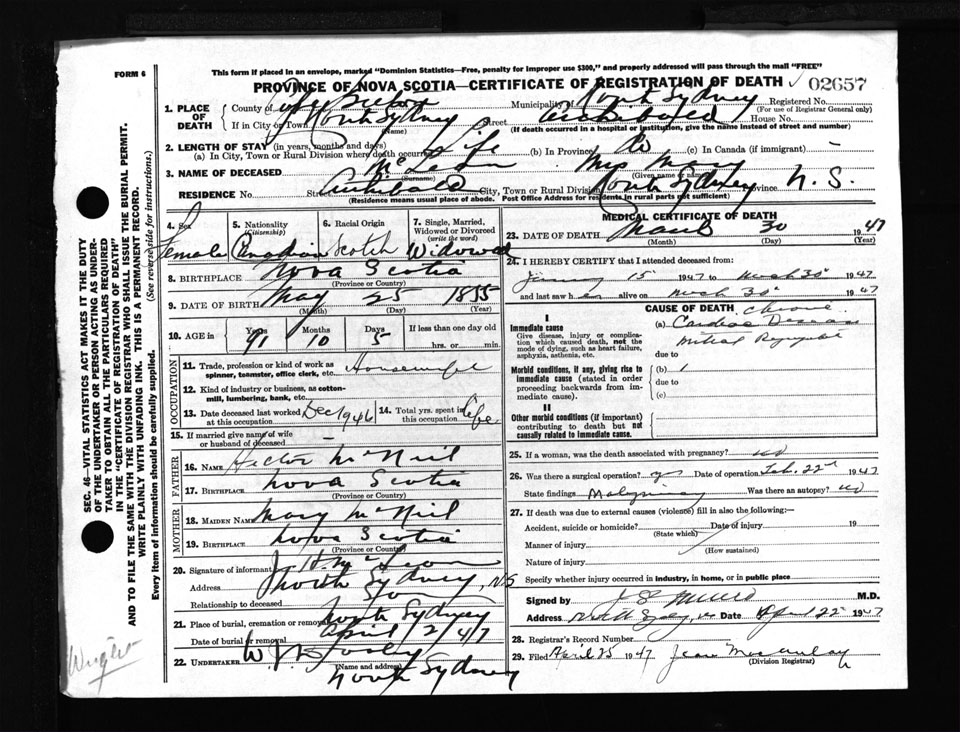 FORM 6
This form if placed in an envelope, marked "Dominion Statistics—Free, penalty for improper use $300," and properly addressed will pass through the mail "FREE"
PROVINCE OF NOVA SCOTIA—CERTIFICATE OF REGISTRATION OF DEATH 02657
1. PLACE OF DEATH County of Municipality of North Sydney Registered No.
(For use of Registrar General only)
If in City or Town North Sydney Street Archibald House No.
(Name) (If death occurred in a hospital or institution, give the name instead of street and number)
2. LENGTH OF STAY (in years, months and days)
(a) In City, Town or Rural Division where death occurred Life (b) In Province Do (c) In Canada (if immigrant) -
3. NAME OF DECEASED McLean Mrs Mary
(Surname) (Given name or names)
RESIDENCE No Street City, Town or Rural Division North Sydney Province N.S.
(Residence means usual place of abode. Post Office Address for residents in rural parts not sufficient)
4. Sex Female
5. Nationality (Citizenship) Canadian
6. Racial Origin Scotch
7. Single, Married, Widowed or Divorced (write the word) Widowed
8. BIRTHPLACE Nova Scotia
(Province or Country)
9. DATE OF BIRTH May 25 1855
(Month) (Day) (Year)
10. AGE in Years 91 Months 10 Days 5 If less than one day old hrs. or min.
OCCUPATION
11. Trade, profession or kind of work as spinner, teamster, office clerk, etc. Housewife
12. Kind of industry or business, as cotton-mill, lumbering, bank, etc.
13. Date deceased last worked at this occupation Dec 1946 14. Total yrs. spent in this occupation Life
15. If married give name of wife or husband of deceased -
FATHER
16. NAME Hector McNeil
17. BIRTHPLACE Nova Scotia
(Province or Country)
MOTHER
18. MAIDEN NAME Mary McNeil
19. BIRTHPLACE Nova Scotia
(Province or Country)
20. Signature of informant McLean
Address North Sydney, NS
Relationship to deceased Son
21. Place of burial, cremation or removal North Sydney
Date of burial or removal April 1/2/47
22. UNDERTAKER W
(Name and address)
North Sydney
MEDICAL CERTIFICATE OF DEATH
23. DATE OF DEATH March 30 1947
(Month) (Day) (Year)
24. I HEREBY CERTIFY that I attended deceased from:
January 15 1947 to March 30 1947
and last saw her alive on March 30 1947
CAUSE OF DEATH
I
Immediate cause
Give disease, injury or complication which caused death, not the mode of dying, such as heart failure, asphyxia, asthenia, etc.
(a) Chronic Cardiac Disease
Mitral
due to
Morbid conditions, if any, giving rise to immediate cause (stated in order proceeding backwards from immediate cause).
(b)
due to
(c)
II
Other morbid conditions (if important) contributing to death but not causally related to immediate cause.
25. If a woman, was the death associated with pregnancy? no
26. Was there a surgical operation? Date of operation Feb. 22nd 1947
State findings Malignancy Was there an autopsy? no
27. If death was due to external causes (violence) fill in also the following:—
Accident, suicide or homicide? Date of injury 19
(State which)
Manner of injury
(How sustained)
Nature of injury
Specify whether injury occurred in industry, in home, or in public place
Signed by M.D.
Address North Sydney, Date April 22 1947
28. Registrar's Record Number
29. Filed April 25 1947 Jean
(Division Registrar)
SEC. 46—VITAL STATISTICS ACT MAKES IT THE DUTY
OF THE UNDERTAKER OR PERSON ACTING AS UNDERTAKER TO OBTAIN ALL THE PARTICULARS REQUIRED
IN THE "CERTIFICATE OF REGISTRATION OF DEATH"
AND TO FILE THE SAME WITH THE DIVISION REGISTRAR WHO SHALL ISSUE THE BURIAL PERMIT.
WRITE PLAINLY WITH UNFADING INK. THIS IS A PERMANENT RECORD.
(See reverse side for instructions.)
Every item of information should be carefully supplied.